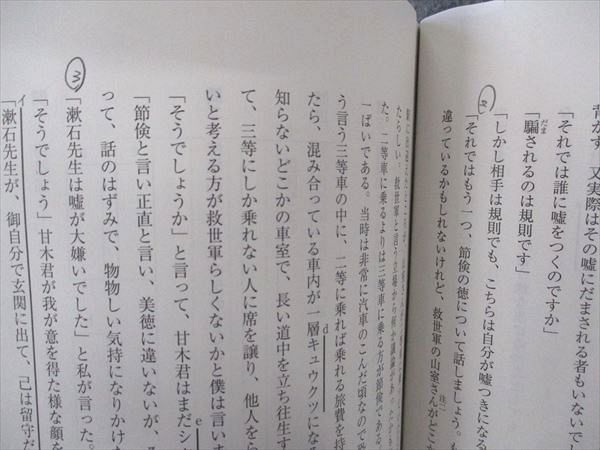 背かず、又実際はその嘘にだまされる者もいないでし
「それでは誰に嘘をつくのですか」
「騙されるのは規則です」
だま
「しかし相手は規則でも、こちらは自分が嘘つきになる
2
「それではもう一つ、節倹の徳について話しましょう。も
違っているかもしれないけれど、救世軍の山室さんがどこか
注二
たらしい。救世軍と言う立場から何か議論が
た。二等車に乗るよりは三等車に乗る方が節倹である。
一ぱいである。当時は非常に汽車のこんだ頃なので
う言う三等車の中に、二等に乗れば乗れる旅費を持
たら、混み合っている車内が一層キュウクツになる
d
知らないどこかの車室で、長い道中を立ち往生す
て、三等にしか乗れない人に席を譲り、他人を
いと考える方が救世軍らしくないかと僕は言いま
「そうでしょうか」と言って、甘木君はまだシ
e
「節倹と言い正直と言い、美徳に違いないが、
って、話のはずみで、物物しい気持になりかけ
3
「漱石先生は嘘が大嫌いでした」と私が言った。
「そうでしょう」甘木君が我が意を得た様な顔を
イ
「漱石先生が、御自分で玄関に出て、己は留守だ